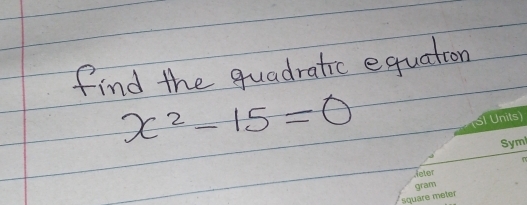 find the quadratic equation
x² - 15 = 0
(SI Units)
Sym
gram
square meter